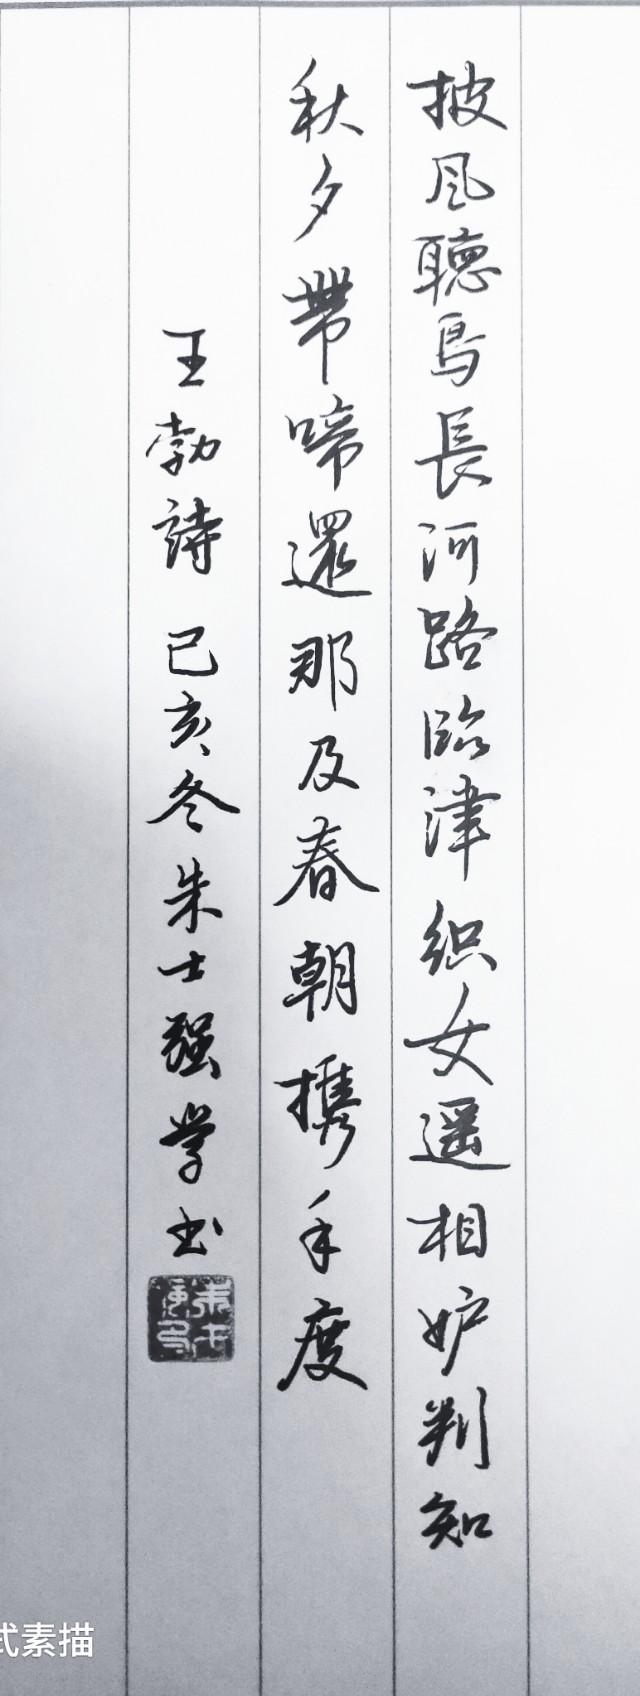 披风聽鸟長河路臨津织女遥相妒判知
秋夕帶啼還那及春朝携手度
王勃詩 己亥冬朱士强学书
式素描